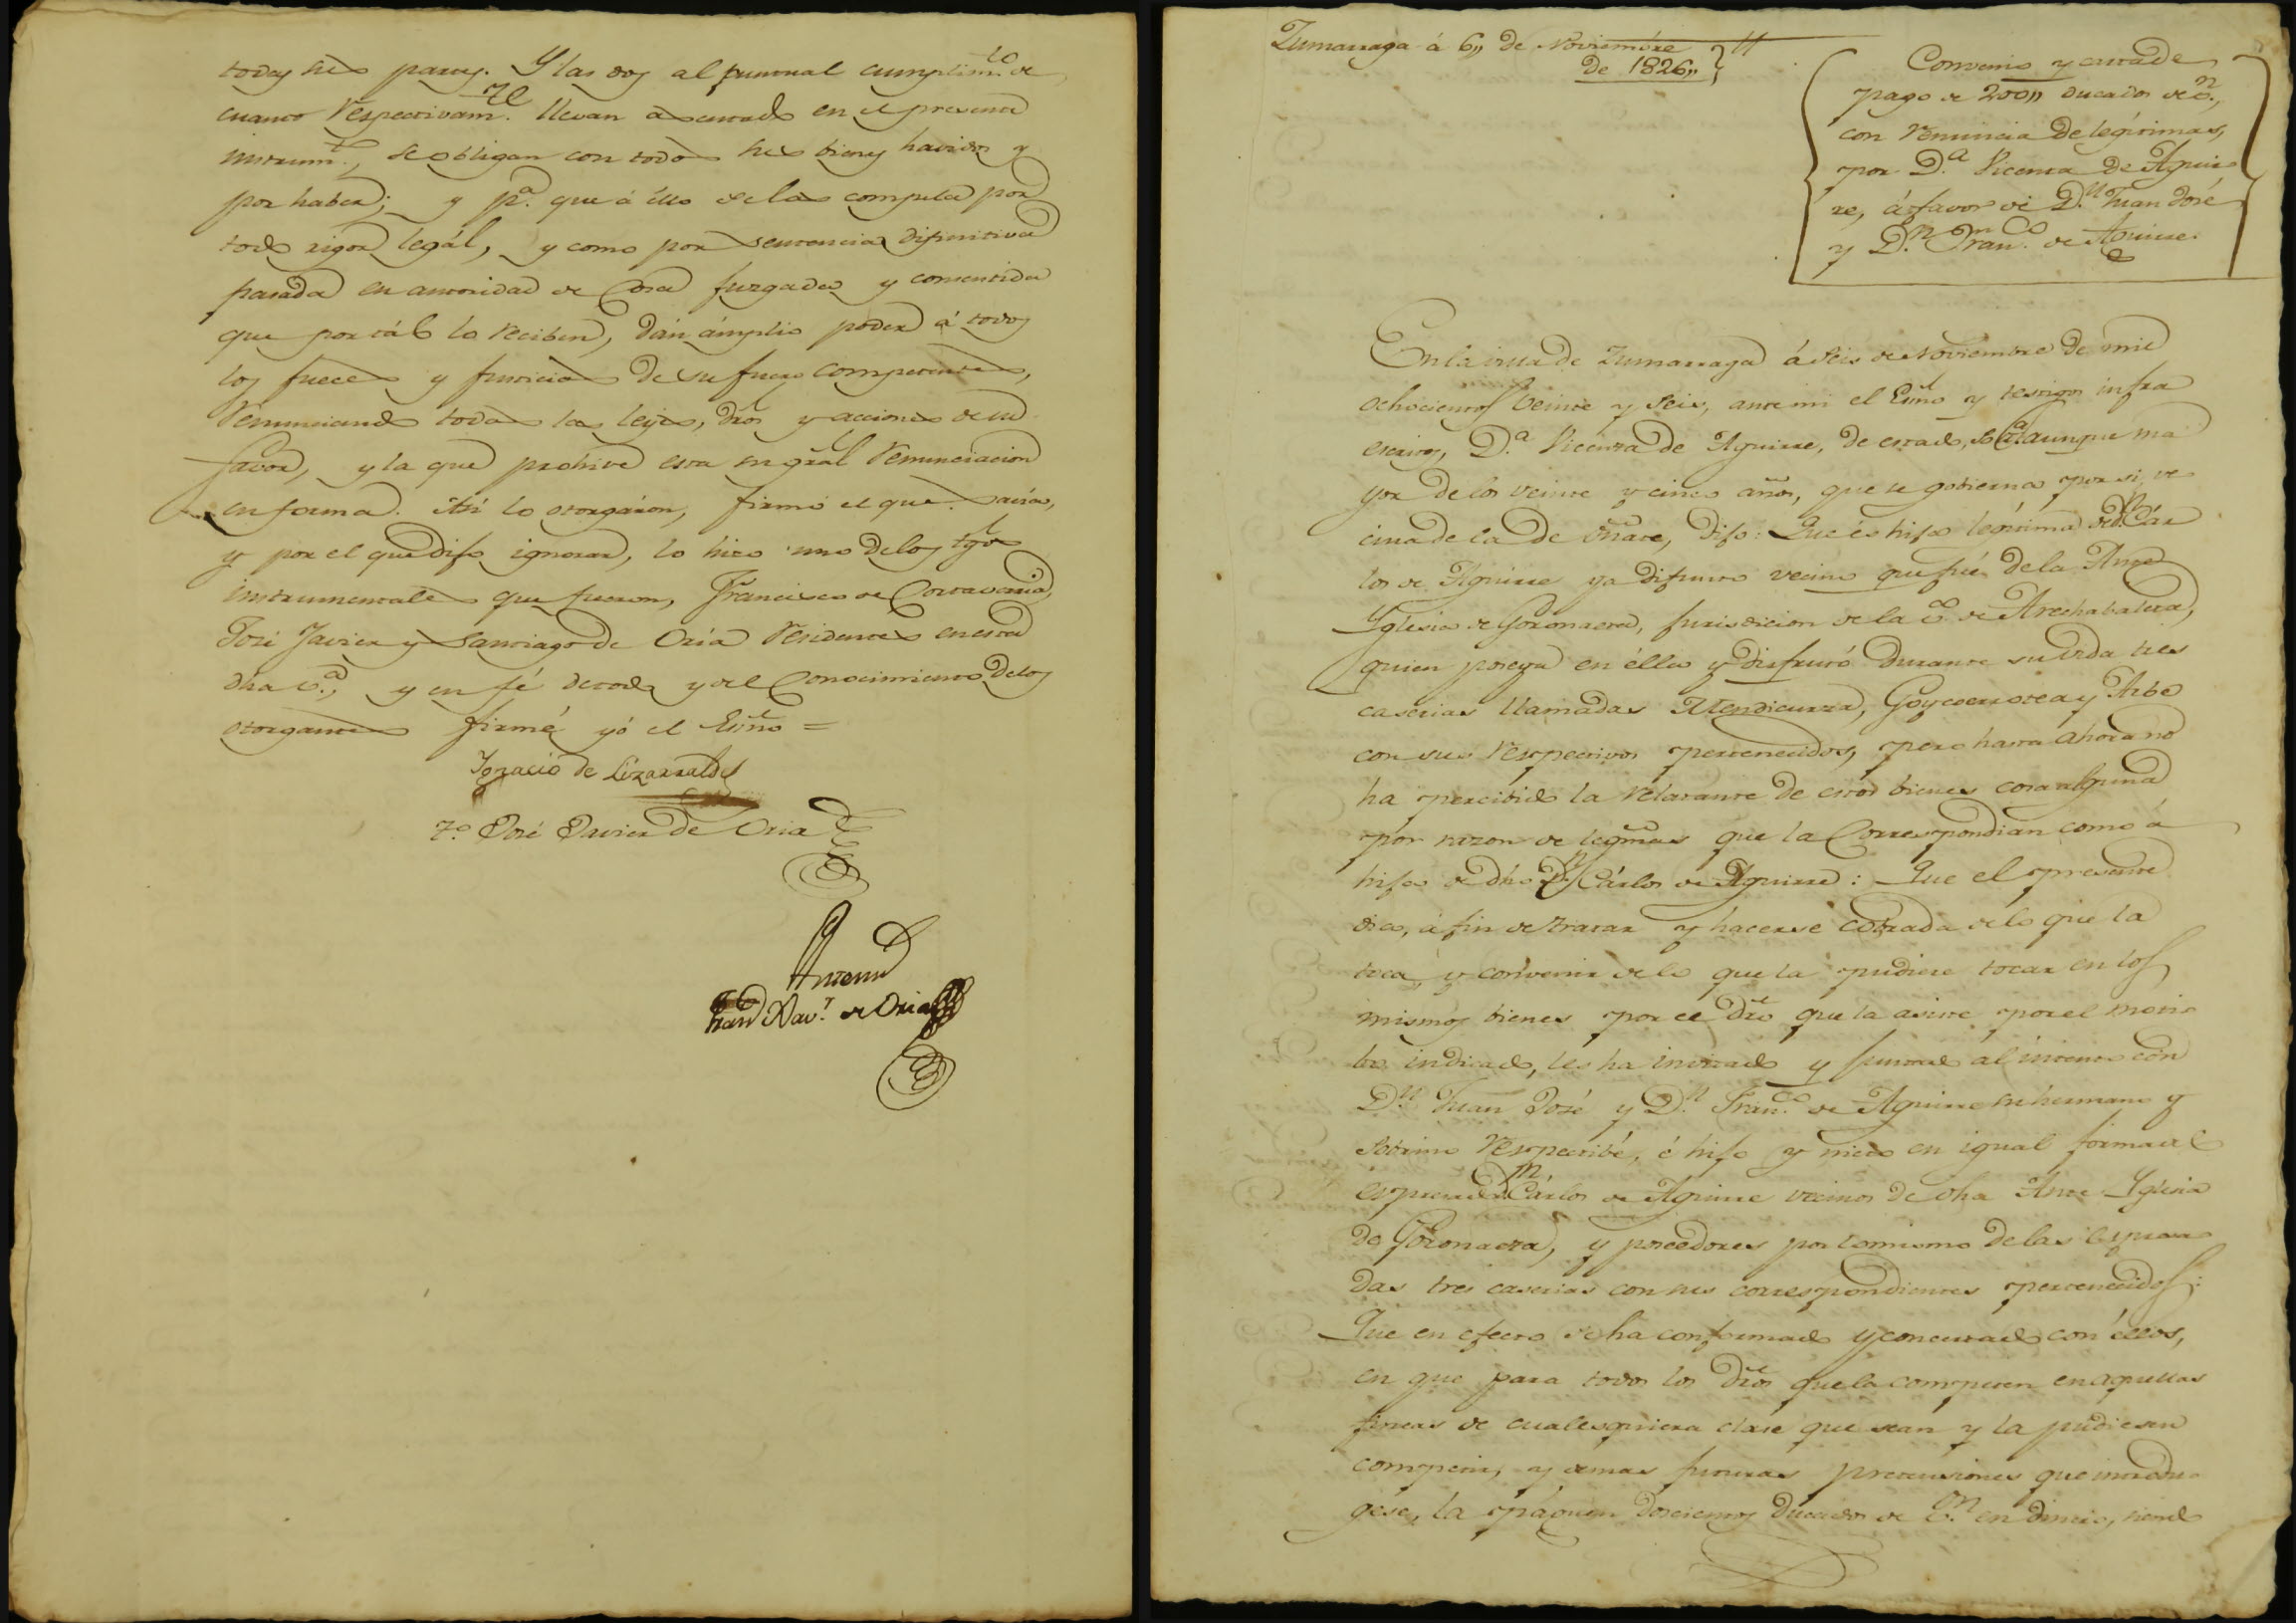 todas sus partes. Y las dos al puntual cumplim.to de
cuanto respectivam.te llevan asentado en el presente
instrum.to, se obligan con todos sus bienes havidos y
por haber; y p.a que á ello se las compela por
todo rigor legál, y como por sentencia difinitiva
pasada en autoridad de Cosa juzgada y consentida
que por tál lo reciben, dán ámplio poder á todos
los jueces y justicias de su fuero competentes,
renunciando todas las leyes, dros y acciones de su
favor, y la que prohive esta en gral renunciacion
en forma. Asi lo otorgáron, firmó el que savía,
y por el que dijo ignorar, lo hizo uno de los tgos
instrumentales que fueron, Francisco de Cortavarria,
José Javier y Santiago de Oria residentes en esta
dha v.a, y en fé de todo y del Conocimiento de los
otorgantes firmé yó el Esno =
Ygnacio de Lizarralde
T.o José Javier de Oria
Antemi
Fran.co Xav.r de Oria
Zumarraga á 6,, de Noviembre
de 1826,,
Convenio y carta de
pago de 200,, ducados de v.n,
con renuncia de legítimas,
por D.a Vicenta de Aguir
re, á favor de D.n Juan José
y D.n Fran.co de Aguirre.
En la villa de Zumarraga á seis de Noviembre de mil
ochocientos veinte y seis, ante mi el Esno y testigos infra
escritos, D.a Vicenta de Aguirre, de estado, aunque ma
yor de los veinte y cinco años, que se gobierna por si, ve
cina de la de Oñate, Dijo: Que és hija legítima de D.n Cár
los de Aguirre ya difunto vecino que fué de la Ante
Yglesia de Goronaeta, jurisdicion de la v.a de Arechabaleta,
quien poseya en élla y disfrutó durante su vida tres
caserias llamadas Mendicurza, Goycoerrotea y Arbe
con sus respectivos pertenecidos, pero hasta ahora no
ha percibido la relatante de estos bienes cosa alguna
por razon de legmas que la Correspondian como á
hija de dho D.n Cárlos de Aguirre: Que el presente
dia, á fin de tratar y hacerse cobrada de lo que la
toca, y convenir de lo que la pudiere tocar en los
mismos bienes por el dro que la asiste por el moti
bo indicado, les ha invitado y juntado al intento con
D.n Juan José y D.n Fran.co de Aguirre su hermano y
sobrino respectibé, é hijo y nieto en igual forma del
espresado D.n Cárlos de Aguirre vecinos de dha Ante Yglesia
de Goronaeta, y poseedores por lo mismo de las espresa
das tres caserias con sus correspondientes pertenecidos:
Que en efecto se ha conformado y concertado con éllos,
en que para todos los dros que la competen en aquellas
fincas de cualesquiera clase que sean y la pudiesen
competir, y demas futuras pretensiones que introdu
gese, la páguen doscientos Ducados de v.n en dinero, siendo